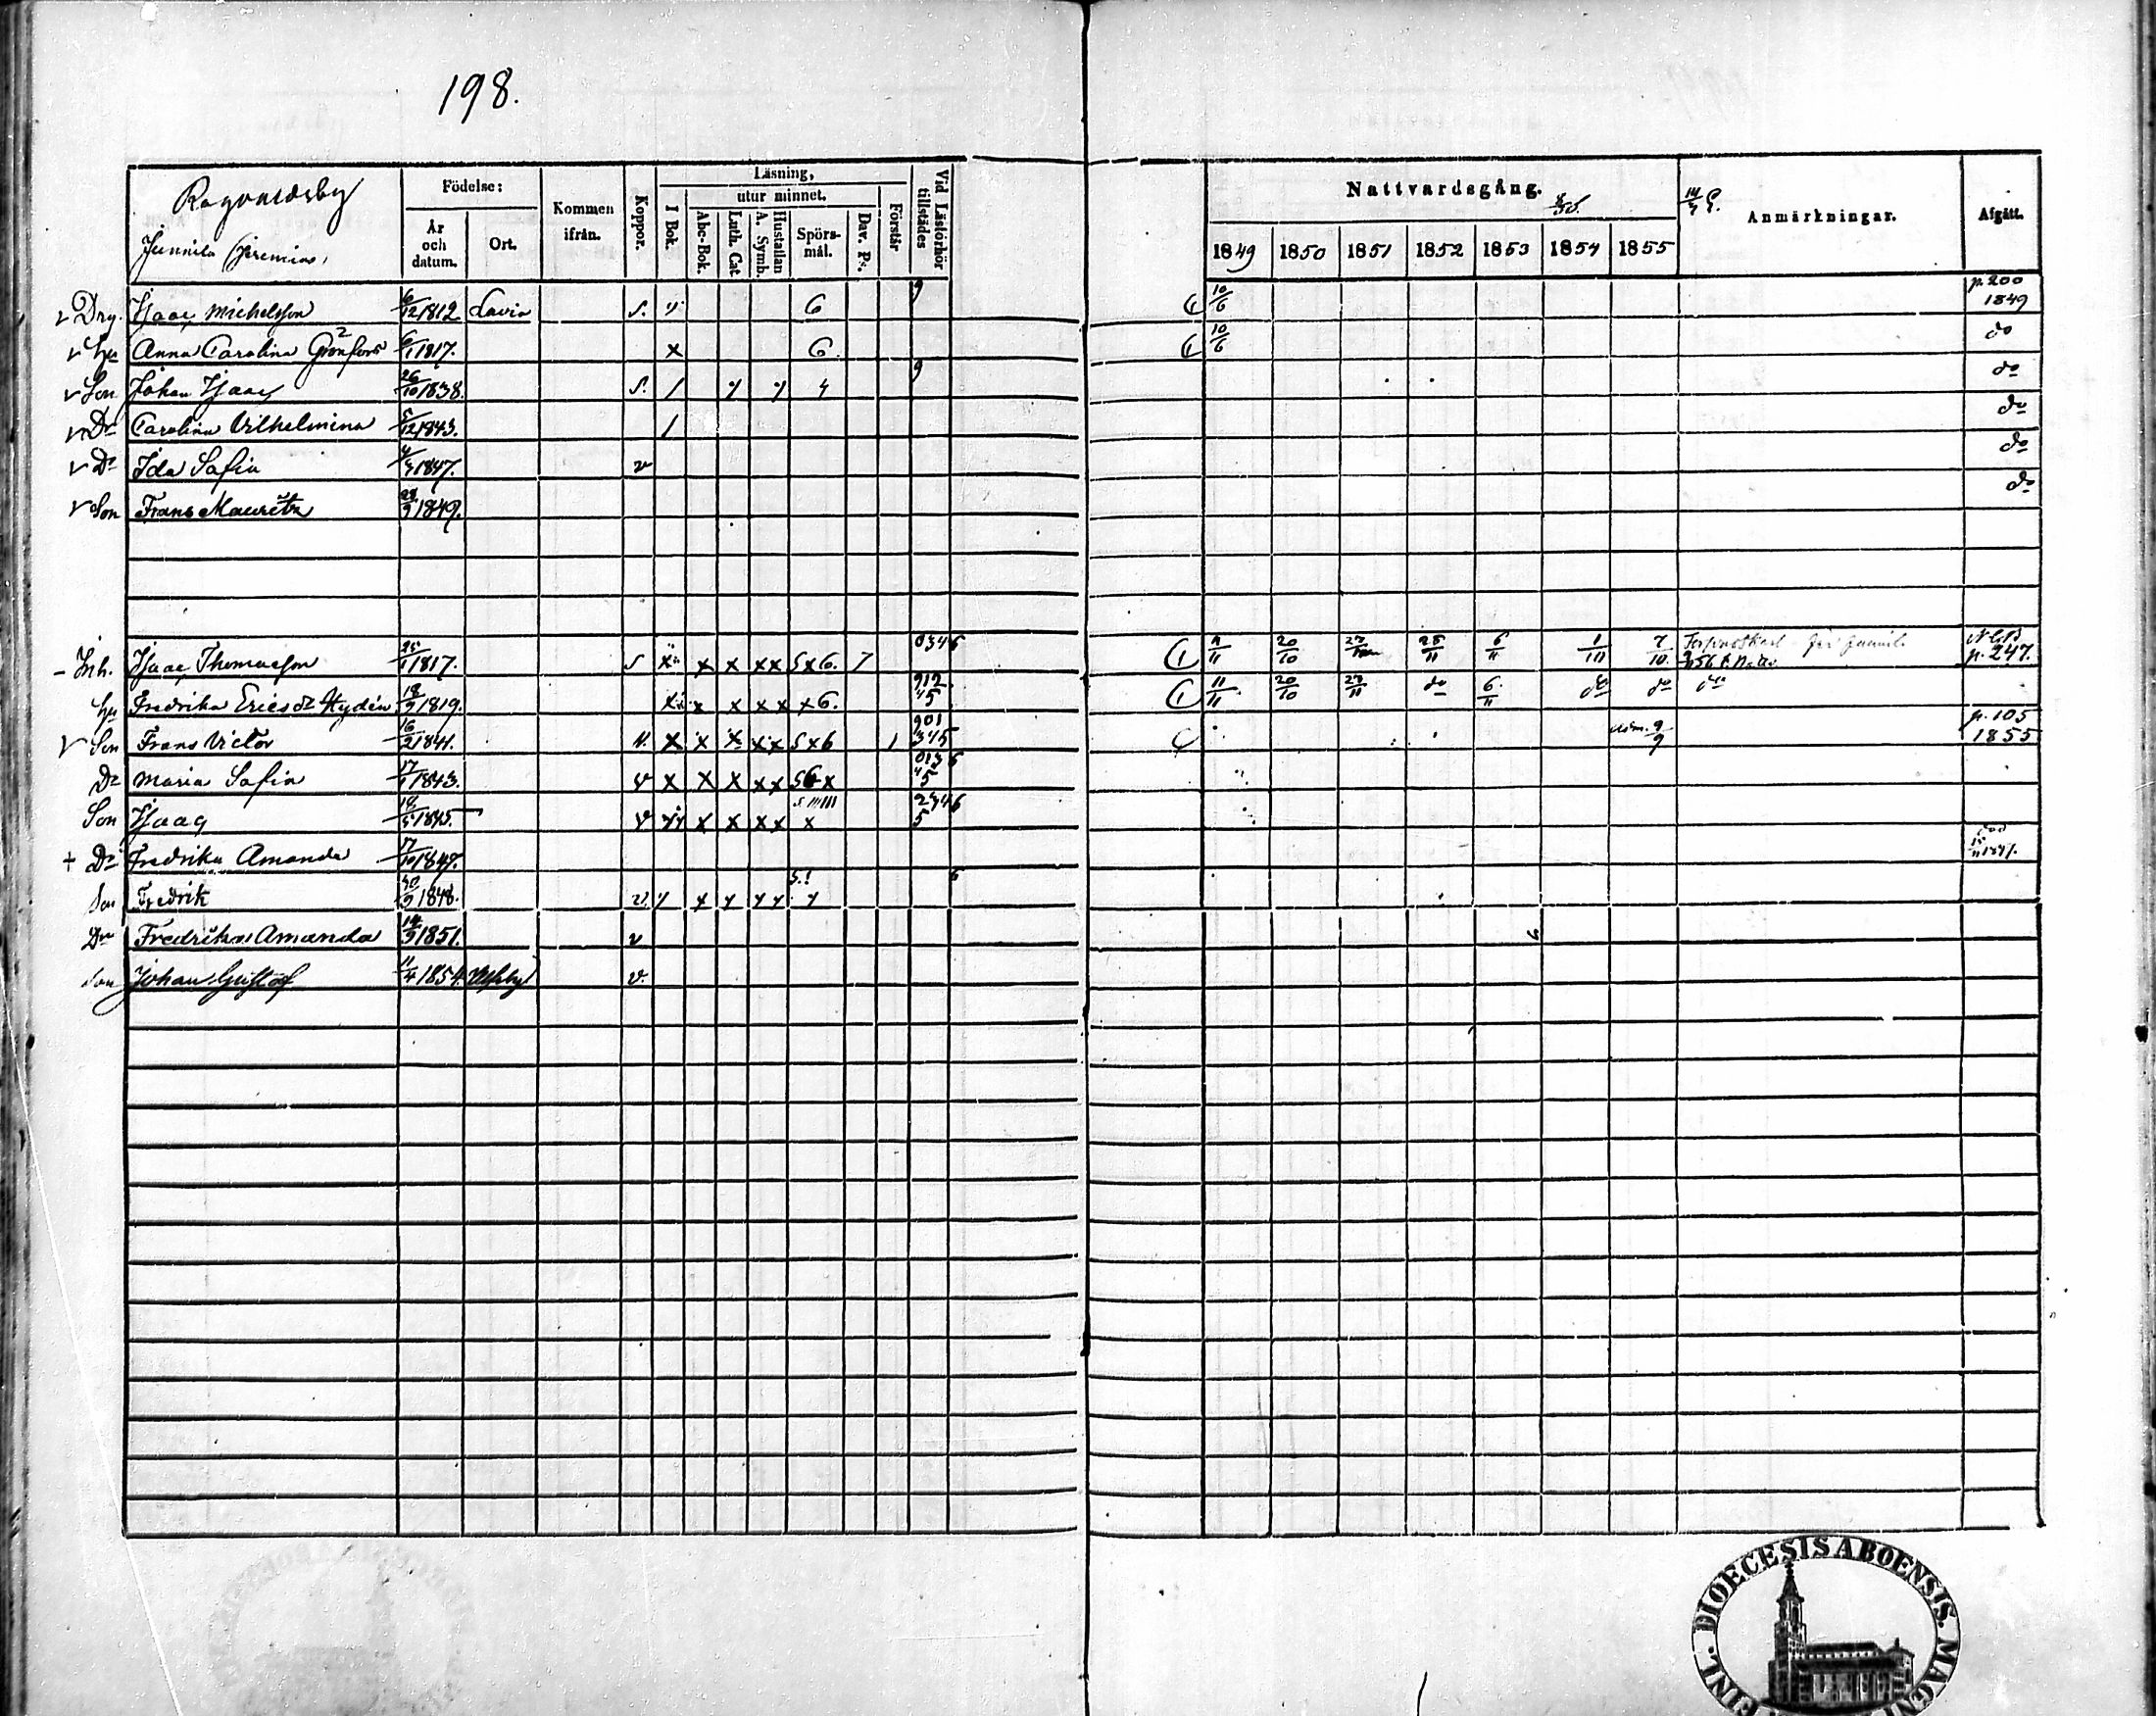 198.
Ragvaldsby
Junnila Jeremias,
Födelse:
År och datum.
Ort.
Kommen ifrån.
Koppor.
Läsning,
I Bok.
utur minnet.
Abc-Bok.
Luth. Cat
A. Symb. Hustaflan
Spörsmål.
Dav. Ps.
Förstår
Vid Läsförhör tillstädes
Nattvardsgång.
Anmärkningar.
Afgått.
1849 1850 1851 1852 1853 1854 1855
v Drg. Isaac Michelsson 6/12 1812 Lavia S. 6 9 10/6 p. 200 1849
v Hu Anna Carolina Grönfors 6/1 1817. x 6 10/6 do
v Son Johan Isaac 26/10 1838. S. / 4 9 do
v Dr Carolina Vilhelmina 5/12 1843. / do
v Dr Ida Sofia 1847. v do
v Son Frans Mauritz 29/9 1849. do
- Inh. Isaac Thomasson 25/1 1817. S x x x x x 5x6. 7 0346 11/11 20/10 27/11 28/11 6/11 1/11 7/10 p. 247.
Hu Fredrika Ericsdr Hydén 18/9 1819. x x x x x x6. 912 45 11/11 20/10 27/11 do 6/11 do do do
v Son Frans Victor 16/2 1841. x x x x x 5x6 1 901 345 adm. 9/9 p. 105 1855
Dr Maria Sofia 17/1 1843. v x x x x x 56x 0136 45
Son Isaac 18/5 1845. v x x x x x 2346 5
+ Dr Fredrika Amanda 17/10 1847. död 15/11 1847.
Son Fredrik 30/9 1848. v. 6
Dr Fredrika Amanda 14/9 1851. v
Son Johan Gustaf 11/4 1854. v.
DIOECESIS ABOENSIS. MAGNI
FINL.